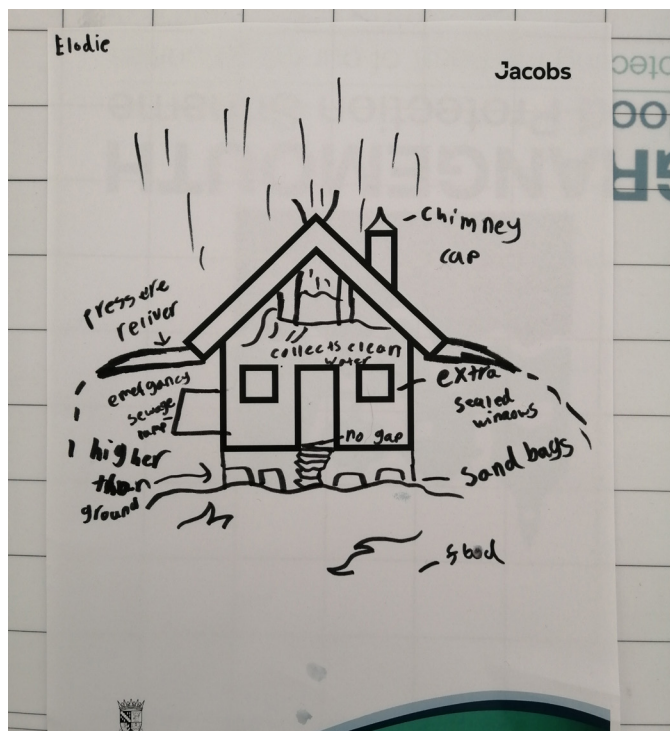 Elodie
Jacobs
chimney
cap
pressure
reliver
collects clean
water
emergancy
sewage
extra
sealed
windows
no gap
higher
than
ground
sand bags
GRANGEMOUTH